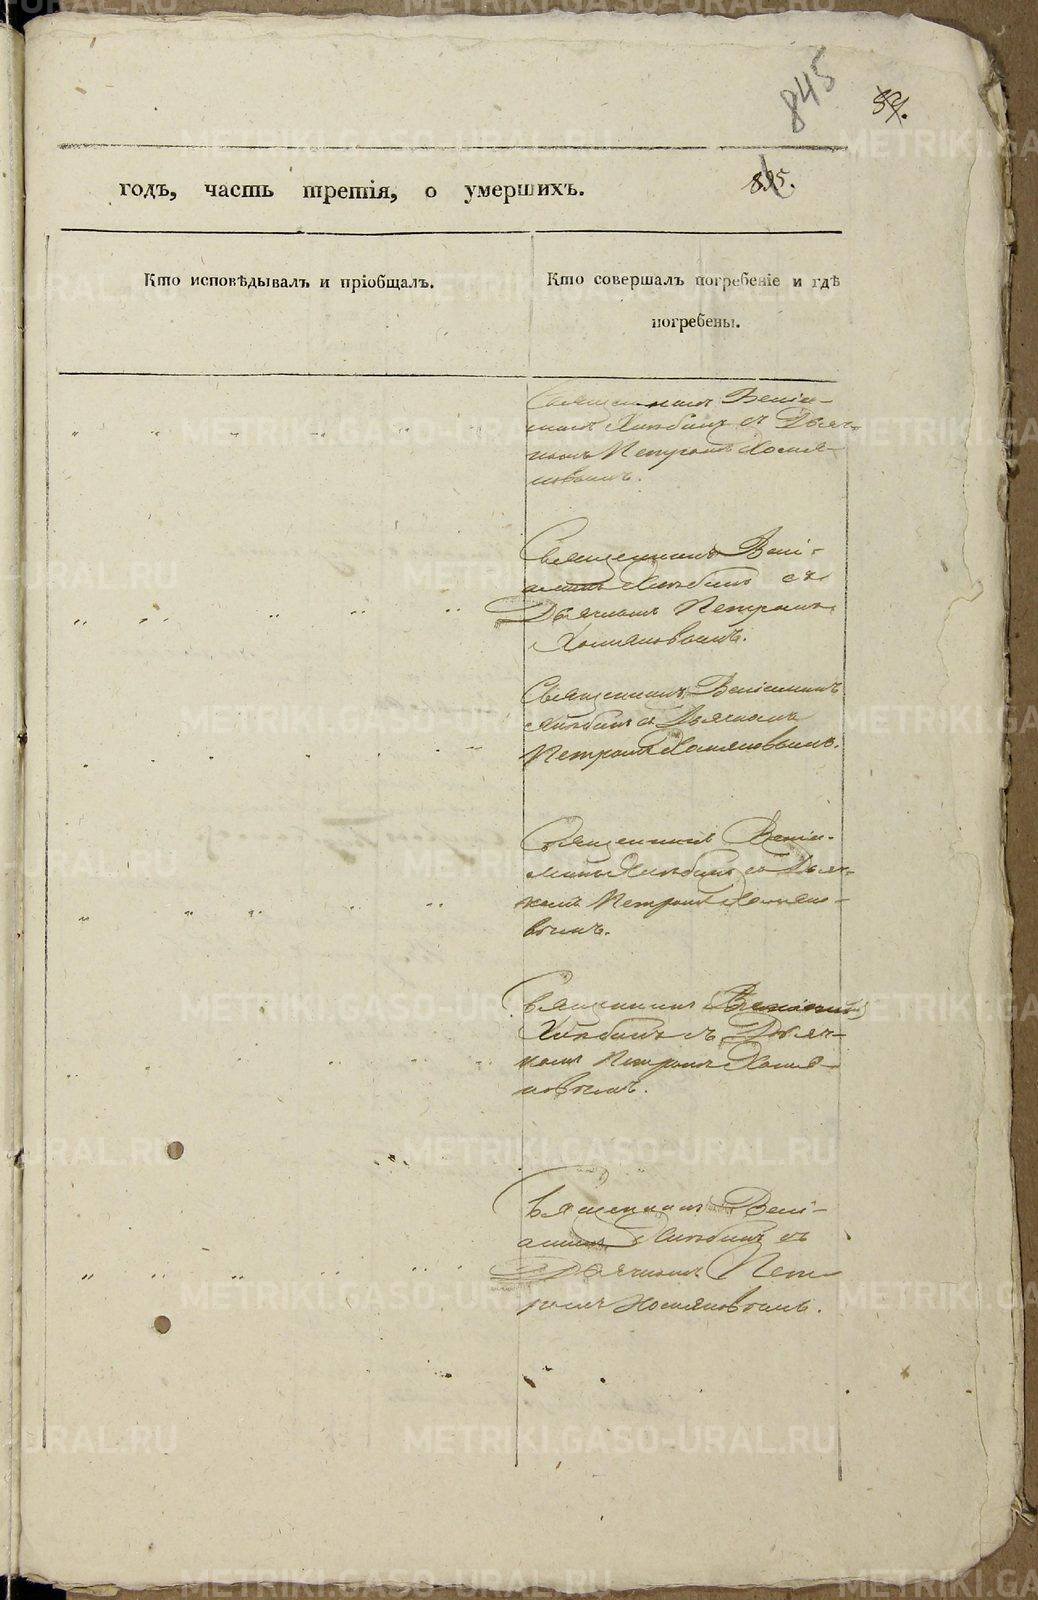 845
годъ, часть третія, о умершихъ.
Кто исповѣдывалъ и пріобщалъ.
Кто совершалъ погребеніе и гдѣ
погребены.
Священникъ Веніа-
минъ Хлѣбинъ съ Дьяч-
комъ Петромъ Хомя-
ковымъ.
Священникъ Вені-
аминъ Хлѣбинъ съ
Дьячкомъ Петромъ
Хомяковымъ.
Священникъ Веніаминъ
Хлѣбинъ съ Дьячкомъ
Петромъ Хомяковымъ.
Священникъ Веніа-
минъ Хлѣбинъ съ Дьяч-
комъ Петромъ Хомяко-
вымъ.
Священникъ Веніаминъ
Хлѣбинъ съ Дьяч-
комъ Петромъ Хомя-
ковымъ.
Священникъ Вені-
аминъ Хлѣбинъ съ
Дьячкомъ Пет-
ромъ Хомяковымъ.
METRIKI.GASO-URAL.RU